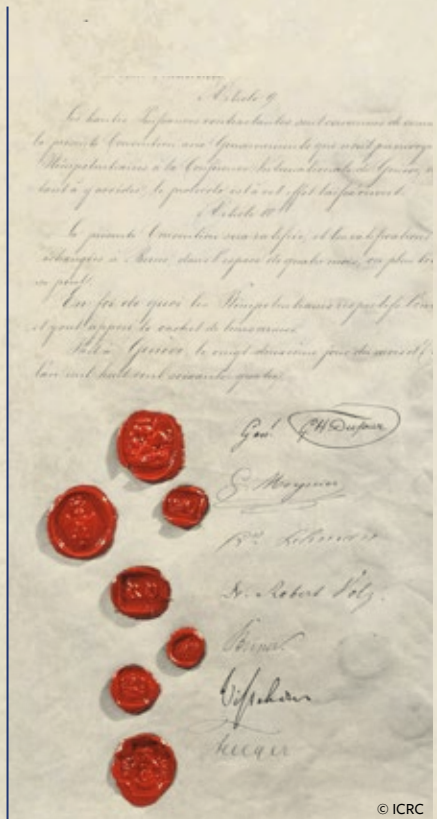 Article 9
Les hautes Puissances contractantes sont convenues de
la présente Convention aux Gouvernements qui n'ont pu envoyer
Plénipotentiaires à la Conférence Internationale de Genève,
tant à y accéder; le protocole est à cet effet laissé ouvert.
Article 10
La présente Convention sera ratifiée, et les ratifications
échangées à Berne, dans l'espace de quatre mois, ou plus tôt
se peut.
En foi de quoi les Plénipotentiaires respectifs l'ont
et y ont apposé le cachet de leurs armes.
Fait à Genève, le vingt deuxième jour du mois d'
l'an mil huit cent soixante quatre.
Genl. GH Dufour
G. Moynier
Dr. Lehmann
Dr. Robert Volz.
Steiner
Visschers
© ICRC